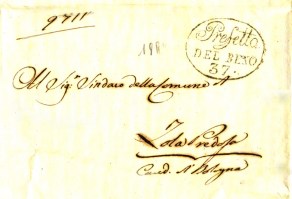 9711
198
Prefetto
DEL RENO
37.
Al Sig.r Sindaco della Comune di
Zola Predosa
Bologna